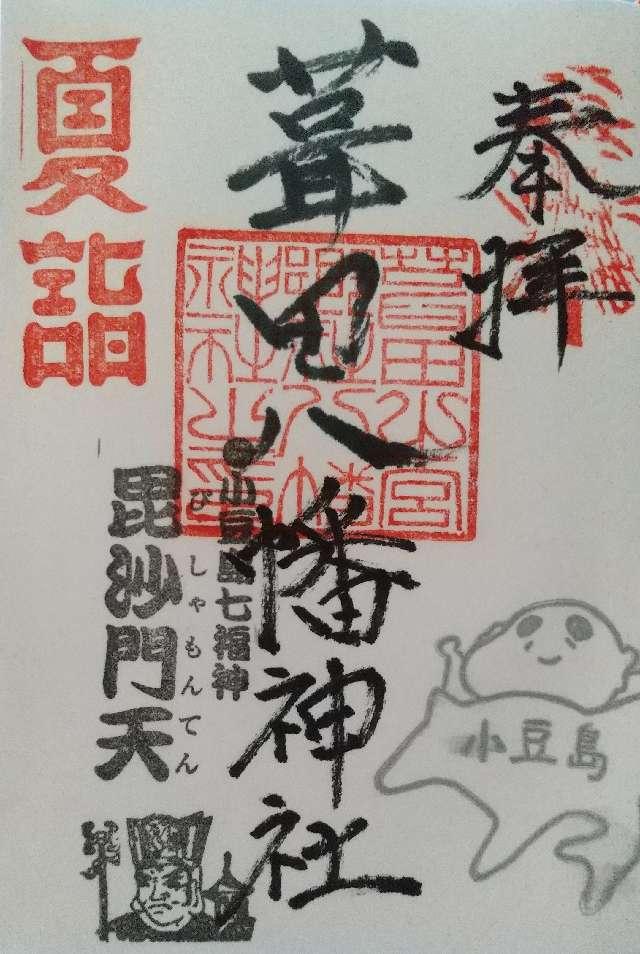 奉拝
葺田八幡神社
夏詣
小豆島七福神
毘沙門天
びしゃもんてん
小豆島